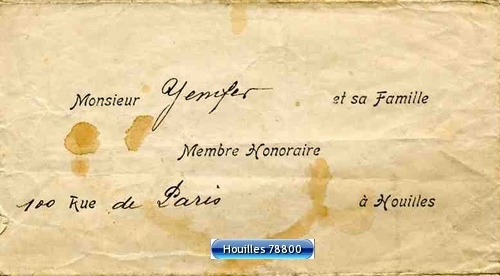 Monsieur Yemfer et sa Famille
Membre Honoraire
100 Rue de Paris à Houilles
Houilles 78800